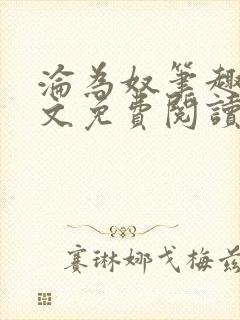 淪為奴筆趣
文免費閱讀
賽琳娜戈梅茲